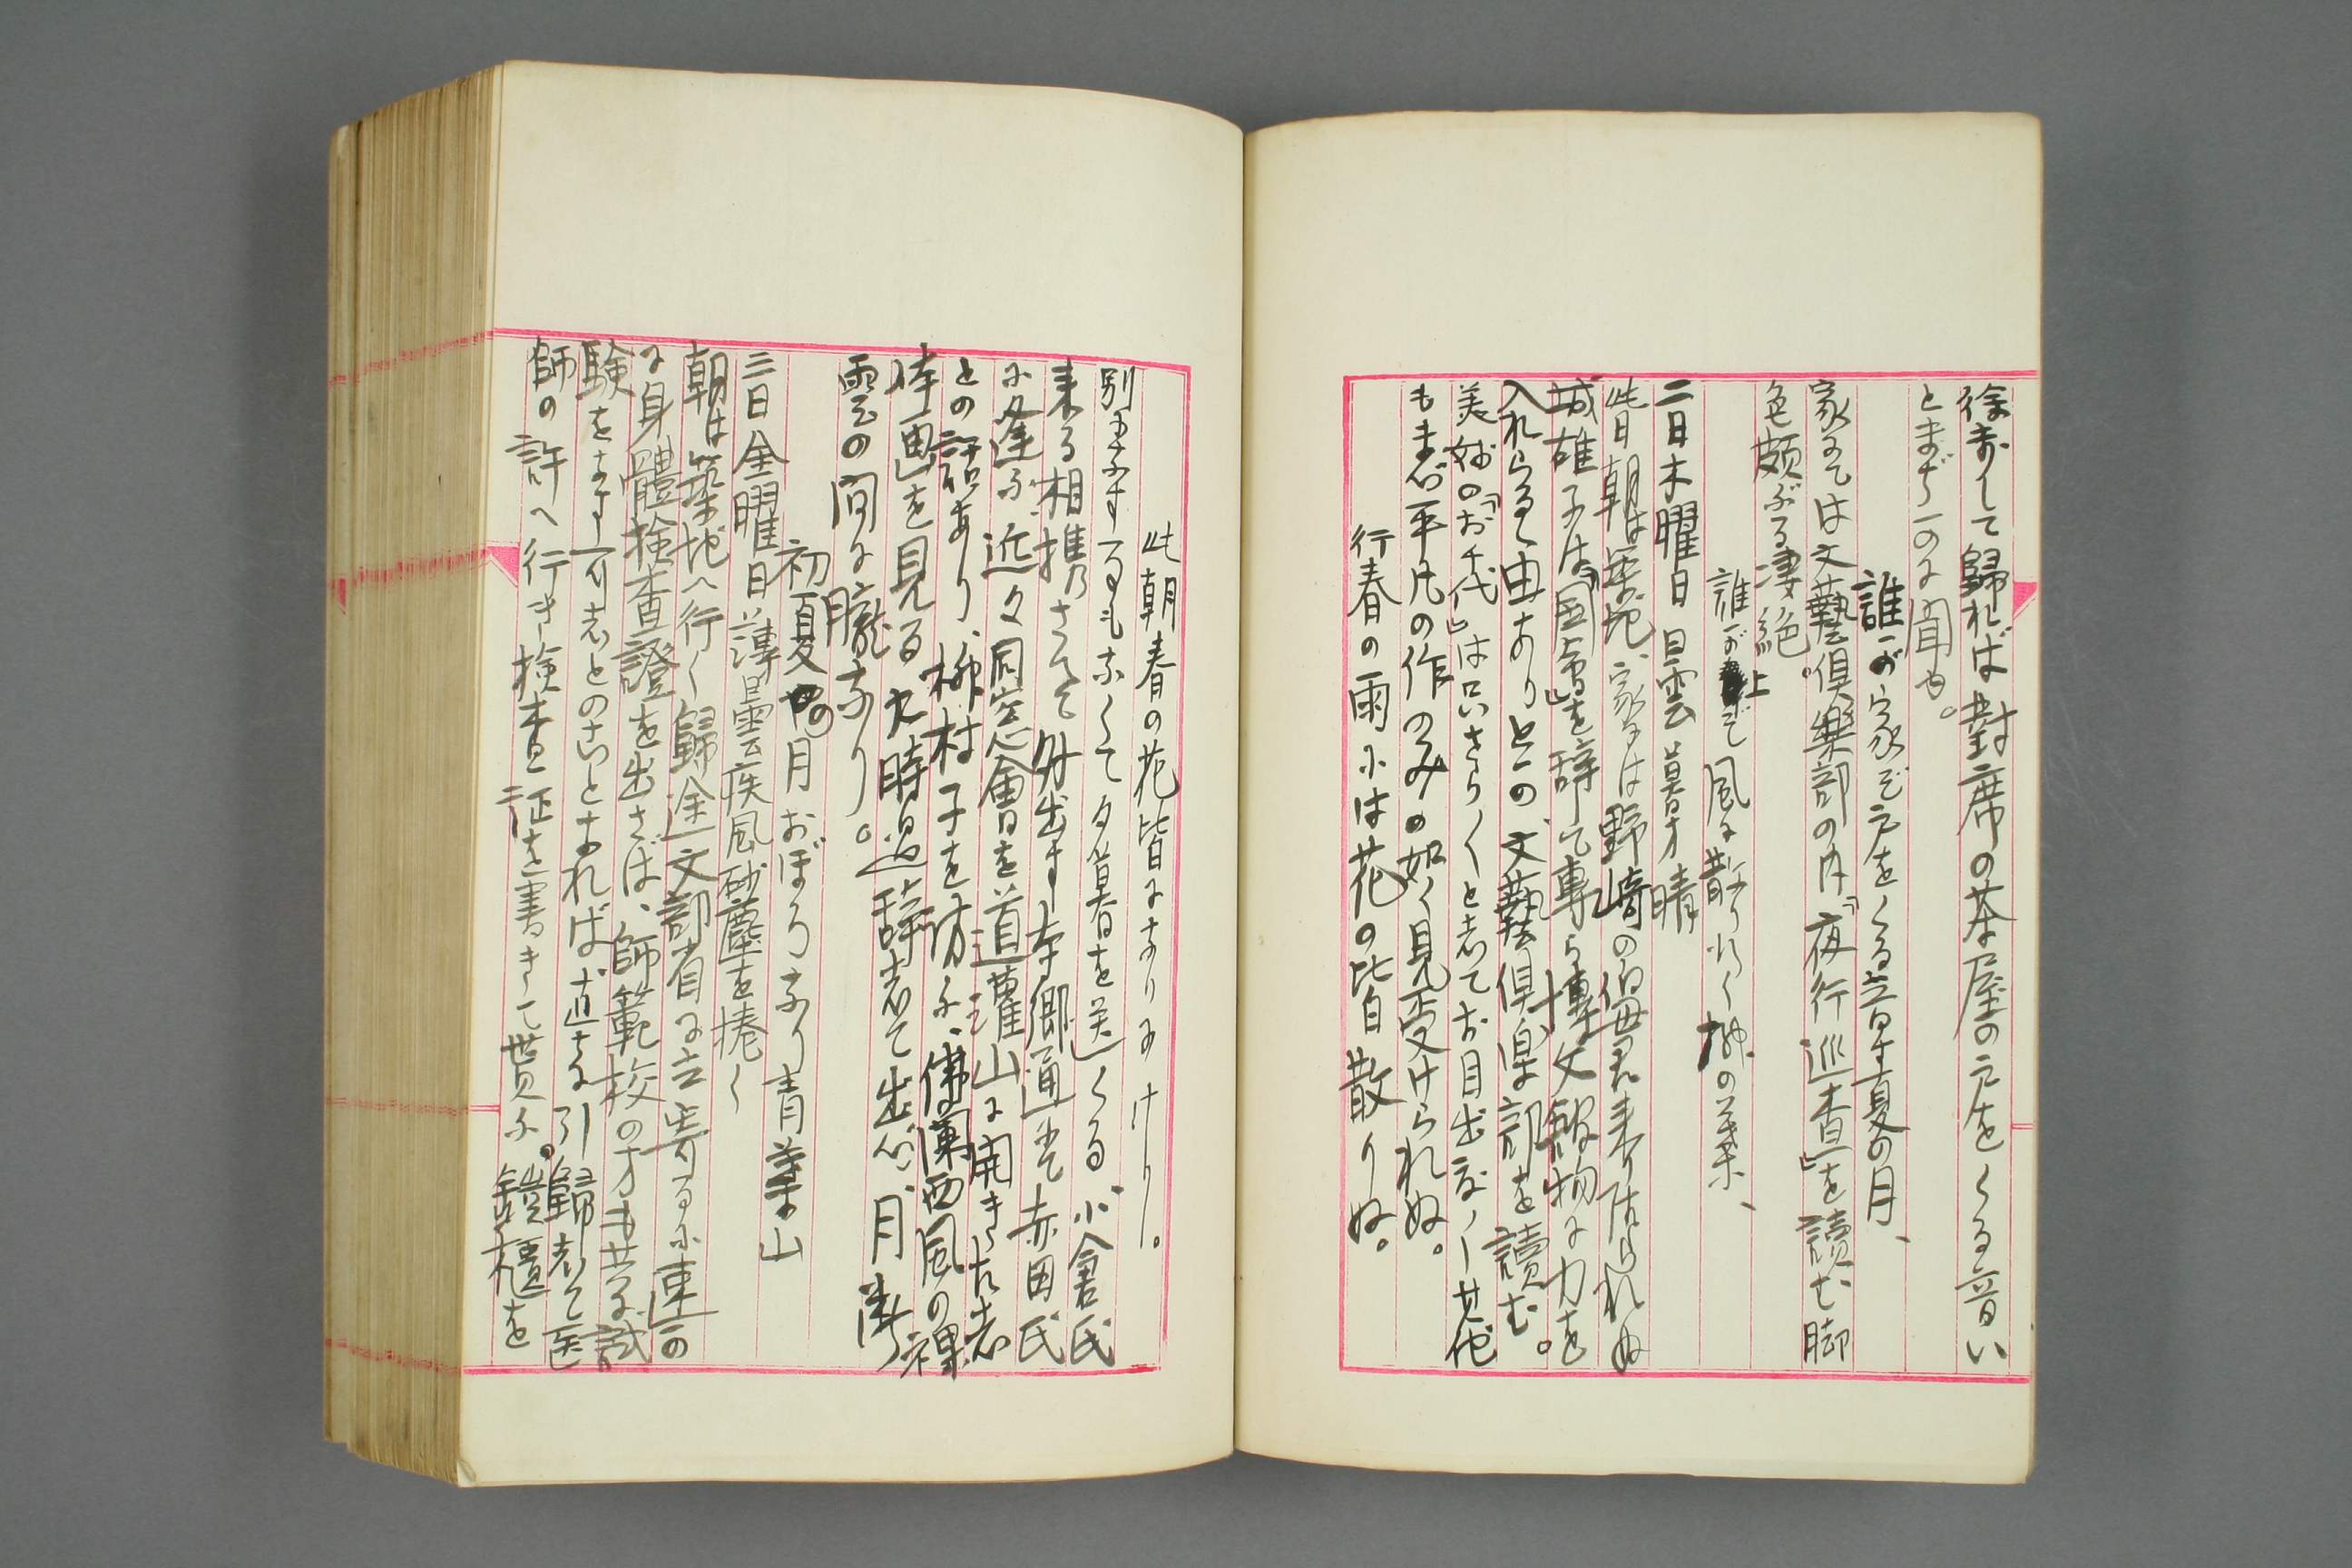 徐歩して歸れば對席の茶屋の戸をくる音い
とまだ一のに聞ゆ。
誰が家ぞ戸をくる音す夏の月、
家にては文藝倶樂部の内『夜行巡査』を讀む脚
色頗ぶる凄絶。
誰が上ぞ風に散り行く柳の葉、
二日木曜日 曇 暮方晴
此日朝は築地、家には野崎の伯母君来り居られぬ
城雄子は『国會』を辞して専ら博文館物に力を
入れらるゝ由ありとの、文藝倶楽部を讀む。
美妙の『お千代』は只さら〱と志てお目出度し其他
もまづ平凡の作のみの如く見受けられぬ。
行春の雨には花の皆散りぬ。
此朝春の花皆になりにけり。
別にすることもなくて夕暮を送くる、小倉氏
来る相携さへて外出す本郷通にて赤田氏
に逢ふ、近々同窓會を道灌山に開きたし
との話あり、柳村子を訪ふ、佛蘭西風の裸
体画を見る九時過辞して出づ、月薄
雲の間に朧なり。
初夏の月おぼろなり青葉山
三日金曜日薄曇疾風砂塵を捲く
朝は築地へ行く歸途文部省に立寄るに速か
に身體檢査證を出さば、師範校の方も共に試
験をます可しとのことなれば直ちに引歸して医
師の許へ行き検査証を書きて貰ふ。鎧櫃を